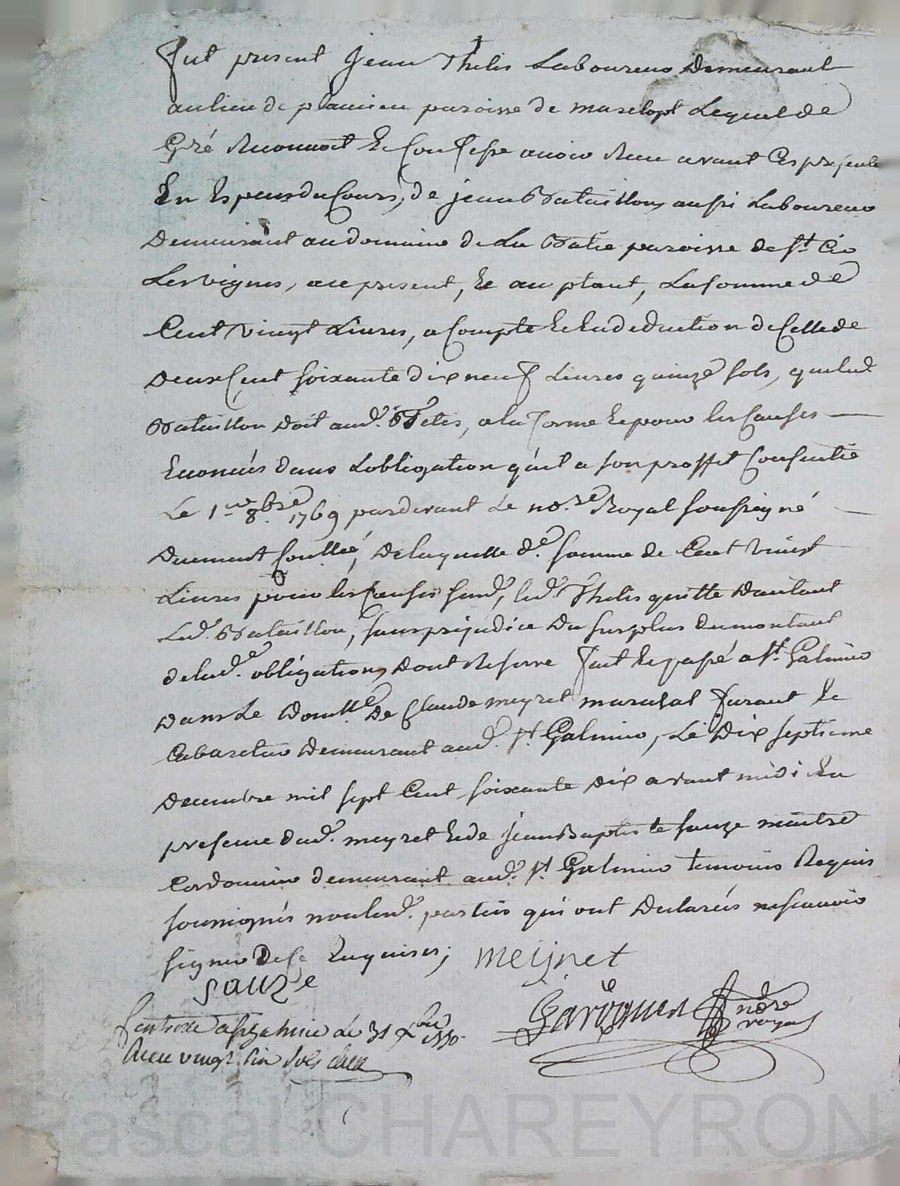 Fut present Jean Thelis Laboureur Demeurant
au lieu de plancieu paroisse de Lequel de
Gré Reconnoit Et Confesse avoir Reçu avant Ces presente
En Especes du Cours, de jean Bataillon, aussi Laboureur
Demeurant au domaine de La Batie paroisse de st. Cir
Les vignes, ace present, Et acceptant, La somme de
Cent vingt Livres, a Compte Et En deduction de Celle de
Deux Cent soixante dix neuf Livres quinze sols, que led.
Bataillon doit aud. Telis, a la forme Et pour les Causes
Enoncées dans Lobligation qu'il a son proffit Consentie
Le 1er 8.bre 1769 pardevant Le no.re Royal soussigné
Duement Conllée, De laquelle d.e somme de Cent vingt
Livres pour les Causes susd. led. Thelis quitte Dautant
Led. Bataillon, sans prejudice Du surplus du montant
de lad.e obligation, Dont Reserve fait Et passé a st. Galmier
Dans Le Domlle. De Claude meynet marechal ferant Et
Cabaretier Demeurant aud. st. Galmier, Le Dix septieme
Decembre mil sept Cent soixante dix avant midi En
presence dud. meynet Et de jean Baptiste sauze maitre
Cordonnier demeurant aud. st. Galmier temoins Requis
soussignés non led. parties qui ont Declarées ne scavoir
signer De ce Enquises;
meijnet
sauze
Garonnier no.re royal
Controllé a st galmier Le 31 xbre 1770.
Reçu vingt six sols
Pascal CHAREYRON